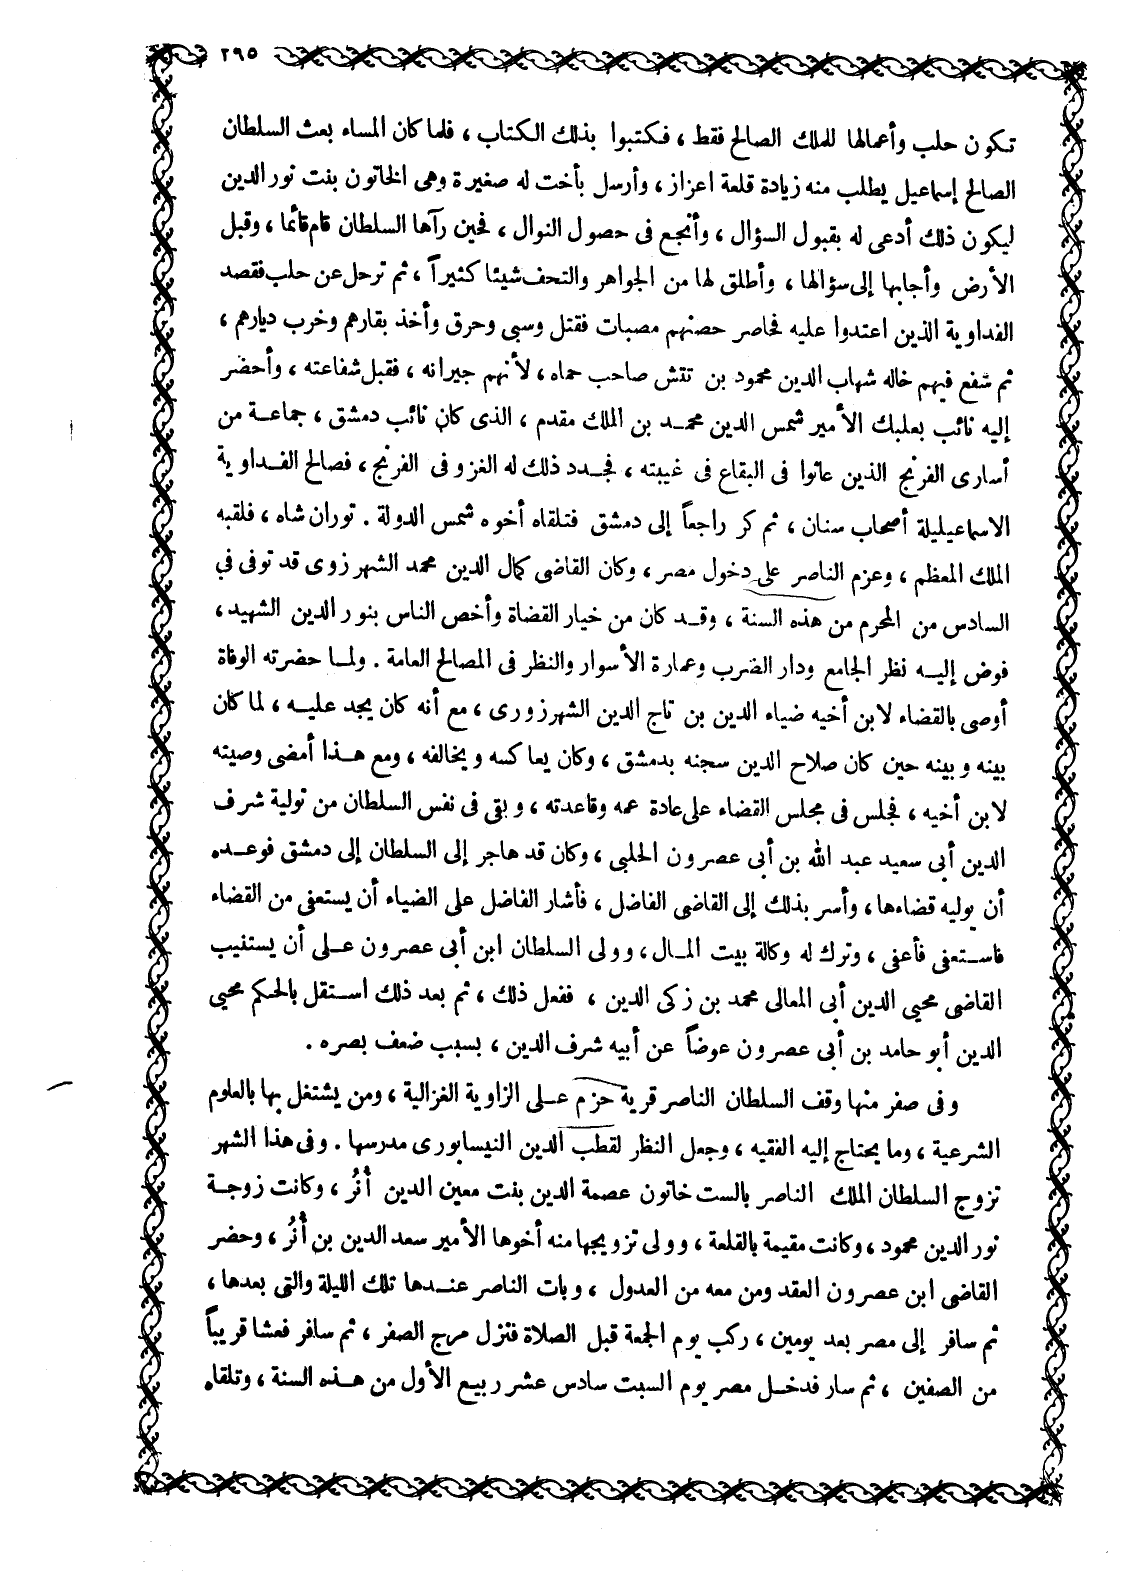 ٢٩٥
تكون حلب وأعمالها للملك الصالح فقط ، فكتبوا بذلك الكتاب ، فلما كان المساء بعث السلطان
الصالح إسماعيل يطلب منه زيادة قلعة اعزاز ، وأرسل بأخت له صغيرة وهى الخاتون بنت نور الدين
ليكون ذلك أدعى له بقبول السؤال ، وأنجع فى حصول النوال ، فحين رآها السلطان قام قائما ، وقبل
الأرض وأجابها إلى سؤالها ، وأطلق لها من الجواهر والتحف شيئا كثيراً ، ثم ترحل عن حلب فقصد
الفداوية الذين اعتدوا عليه فحاصر حصنهم مصبات فقتل وسبى وحرق وأخذ بقارهم وخرب ديارهم ،
ثم شفع فيهم خاله شهاب الدين محمود بن تتش صاحب حماه ، لأنهم جيرانه ، فقبل شفاعته ، وأحضر
إليه نائب بعلبك الأمير شمس الدين محمد بن الملك مقدم ، الذى كان نائب دمشق ، جماعة من
أسارى الفرنج الذين عاثوا فى البقاع فى غيبته ، فجدد ذلك له الغزو فى الفرنج ، فصالح الفداوية
الاسماعيليلة أصحاب سنان ، ثم كر راجعاً إلى دمشق فتلقاه أخوه شمس الدولة . توران شاه ، فلقبه
الملك المعظم ، وعزم الناصر على دخول مصر ، وكان القاضى كمال الدين محمد الشهرزوى قد توفى فى
السادس من المحرم من هذه السنة ، وقد كان من خيار القضاة وأخص الناس بنور الدين الشهيد ،
فوض إليه نظر الجامع ودار الضرب وعمارة الأسوار والنظر فى المصالح العامة . ولما حضرته الوفاة
أوصى بالقضاء لابن أخيه ضياء الدين بن تاج الدين الشهرزورى ، مع أنه كان يجد عليه ، لما كان
بينه وبينه حين كان صلاح الدين سجنه بدمشق ، وكان يعاكسه ويخالفه ، ومع هذا أمضى وصيته
لابن أخيه ، فجلس فى مجلس القضاء على عادة عمه وقاعدته ، وبقى فى نفس السلطان من تولية شرف
الدين أبى سعيد عبد الله بن أبى عصرون الحلبى ، وكان قد هاجر إلى السلطان إلى دمشق فوعده
أن يوليه قضاءها ، وأسر بذلك إلى القاضى الفاضل ، فأشار الفاضل على الضياء أن يستعفى من القضاء
فاستعفى فأعفى ، وترك له وكالة بيت المال ، وولى السلطان ابن أبى عصرون على أن يستنيب
القاضى محيى الدين أبى المعالى محمد بن زكى الدين ، ففعل ذلك ، ثم بعد ذلك استقل بالحكم محيى
الدين أبو حامد بن أبى عصرون عوضاً عن أبيه شرف الدين ، بسبب ضعف بصره .
وفى صفر منها وقف السلطان الناصر قرية حزم على الزاوية الغزالية ، ومن يشتغل بها بالعلوم
الشرعية ، وما يحتاج إليه الفقيه ، وجعل النظر لقطب الدين النيسابورى مدرسها . وفى هذا الشهر
تزوج السلطان الملك الناصر بالست خاتون عصمة الدين بنت معين الدين أُنُر ، وكانت زوجة
نور الدين محمود ، وكانت مقيمة بالقلعة ، وولى تزويجها منه أخوها الأمير سعد الدين بن أُنُر ، وحضر
القاضى ابن عصرون العقد ومن معه من العدول ، وبات الناصر عندها تلك الليلة والتى بعدها ،
ثم سافر إلى مصر بعد يومين ، ركب يوم الجمعة قبل الصلاة فنزل مرج الصفر ، ثم سافر فعشا قريباً
من الصفين ، ثم سار فدخل مصر يوم السبت سادس عشر ربيع الأول من هذه السنة ، وتلقاه